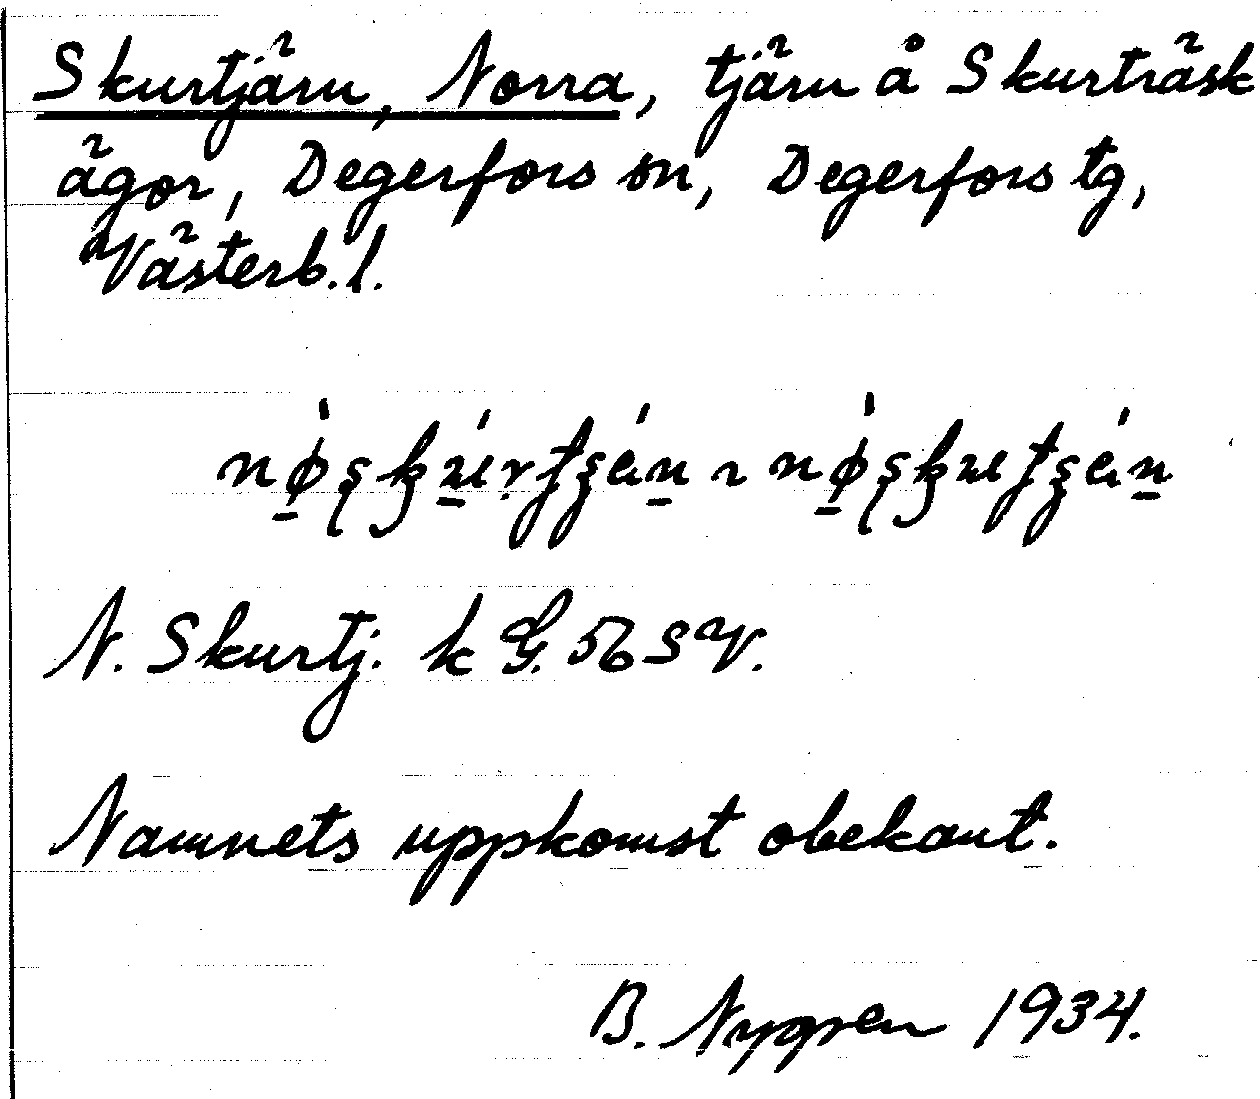 Skurtjärn, Norra, tjärn å Skurträsk
ägor, Degerfors sn, Degerfors tg,
Västerb. l.
N. Skurtj. k G. 56 SV.
Namnets uppkomst obekant.
B. Nygren 1934.